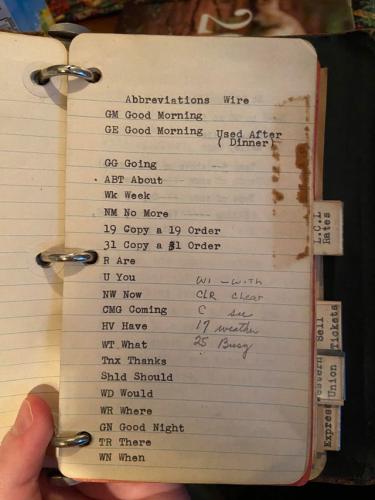 Abbreviations Wire
GM Good Morning
GE Good Morning Used After
( Dinner)
GG Going
ABT About
Wk Week
NM No More
19 Copy a 19 Order
31 Copy a 31 Order
R Are
U You
NW Now
CMG Coming
HV Have
WT What
Tnx Thanks
Shld Should
WD Would
WR Where
GN Good Night
TR There
WN When
Wi - with
CLR Clear
C see
17 weather
25 Busy
L.C.L
Rates
Sell
Tickets
Western
Union
Express